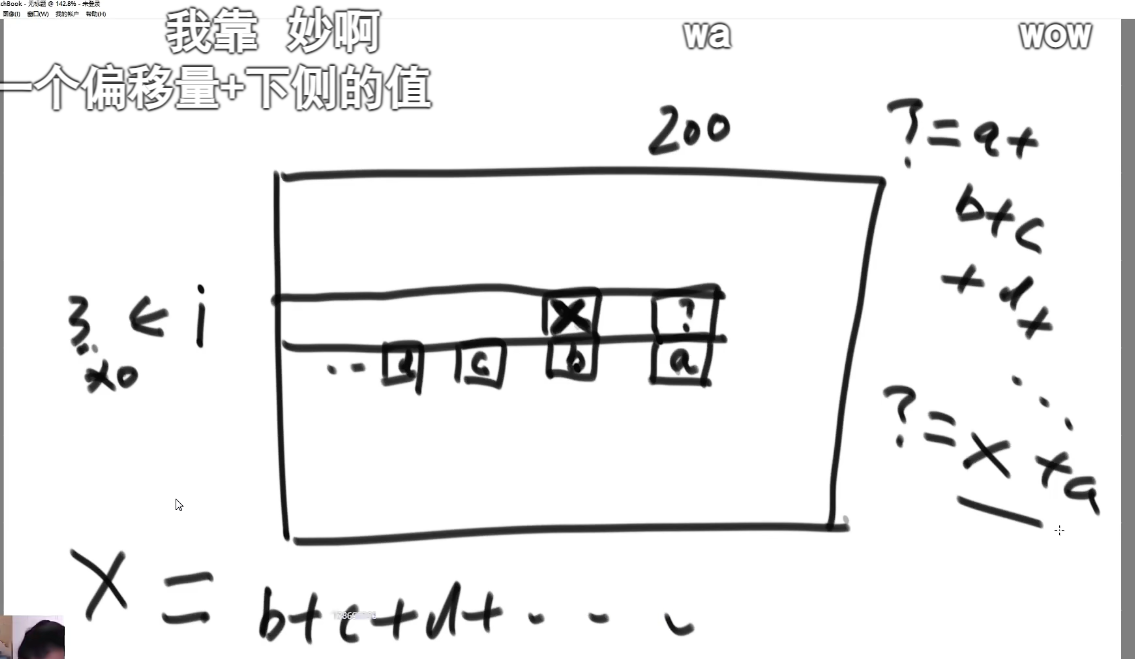 chBook - 无标题 @ 142.8% - 未登录
影像(I) 窗口(W) 我的帐户 帮助(H)
我靠 妙啊 wa wow
一个偏移量+下侧的值
200
? = a +
b + c
+ d +
...
3 ← i
x ?
x0
.. d c b a
? = x + a
x = b + c + d + . . .